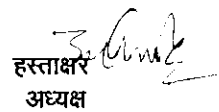 हस्ताक्षर
अध्यक्ष